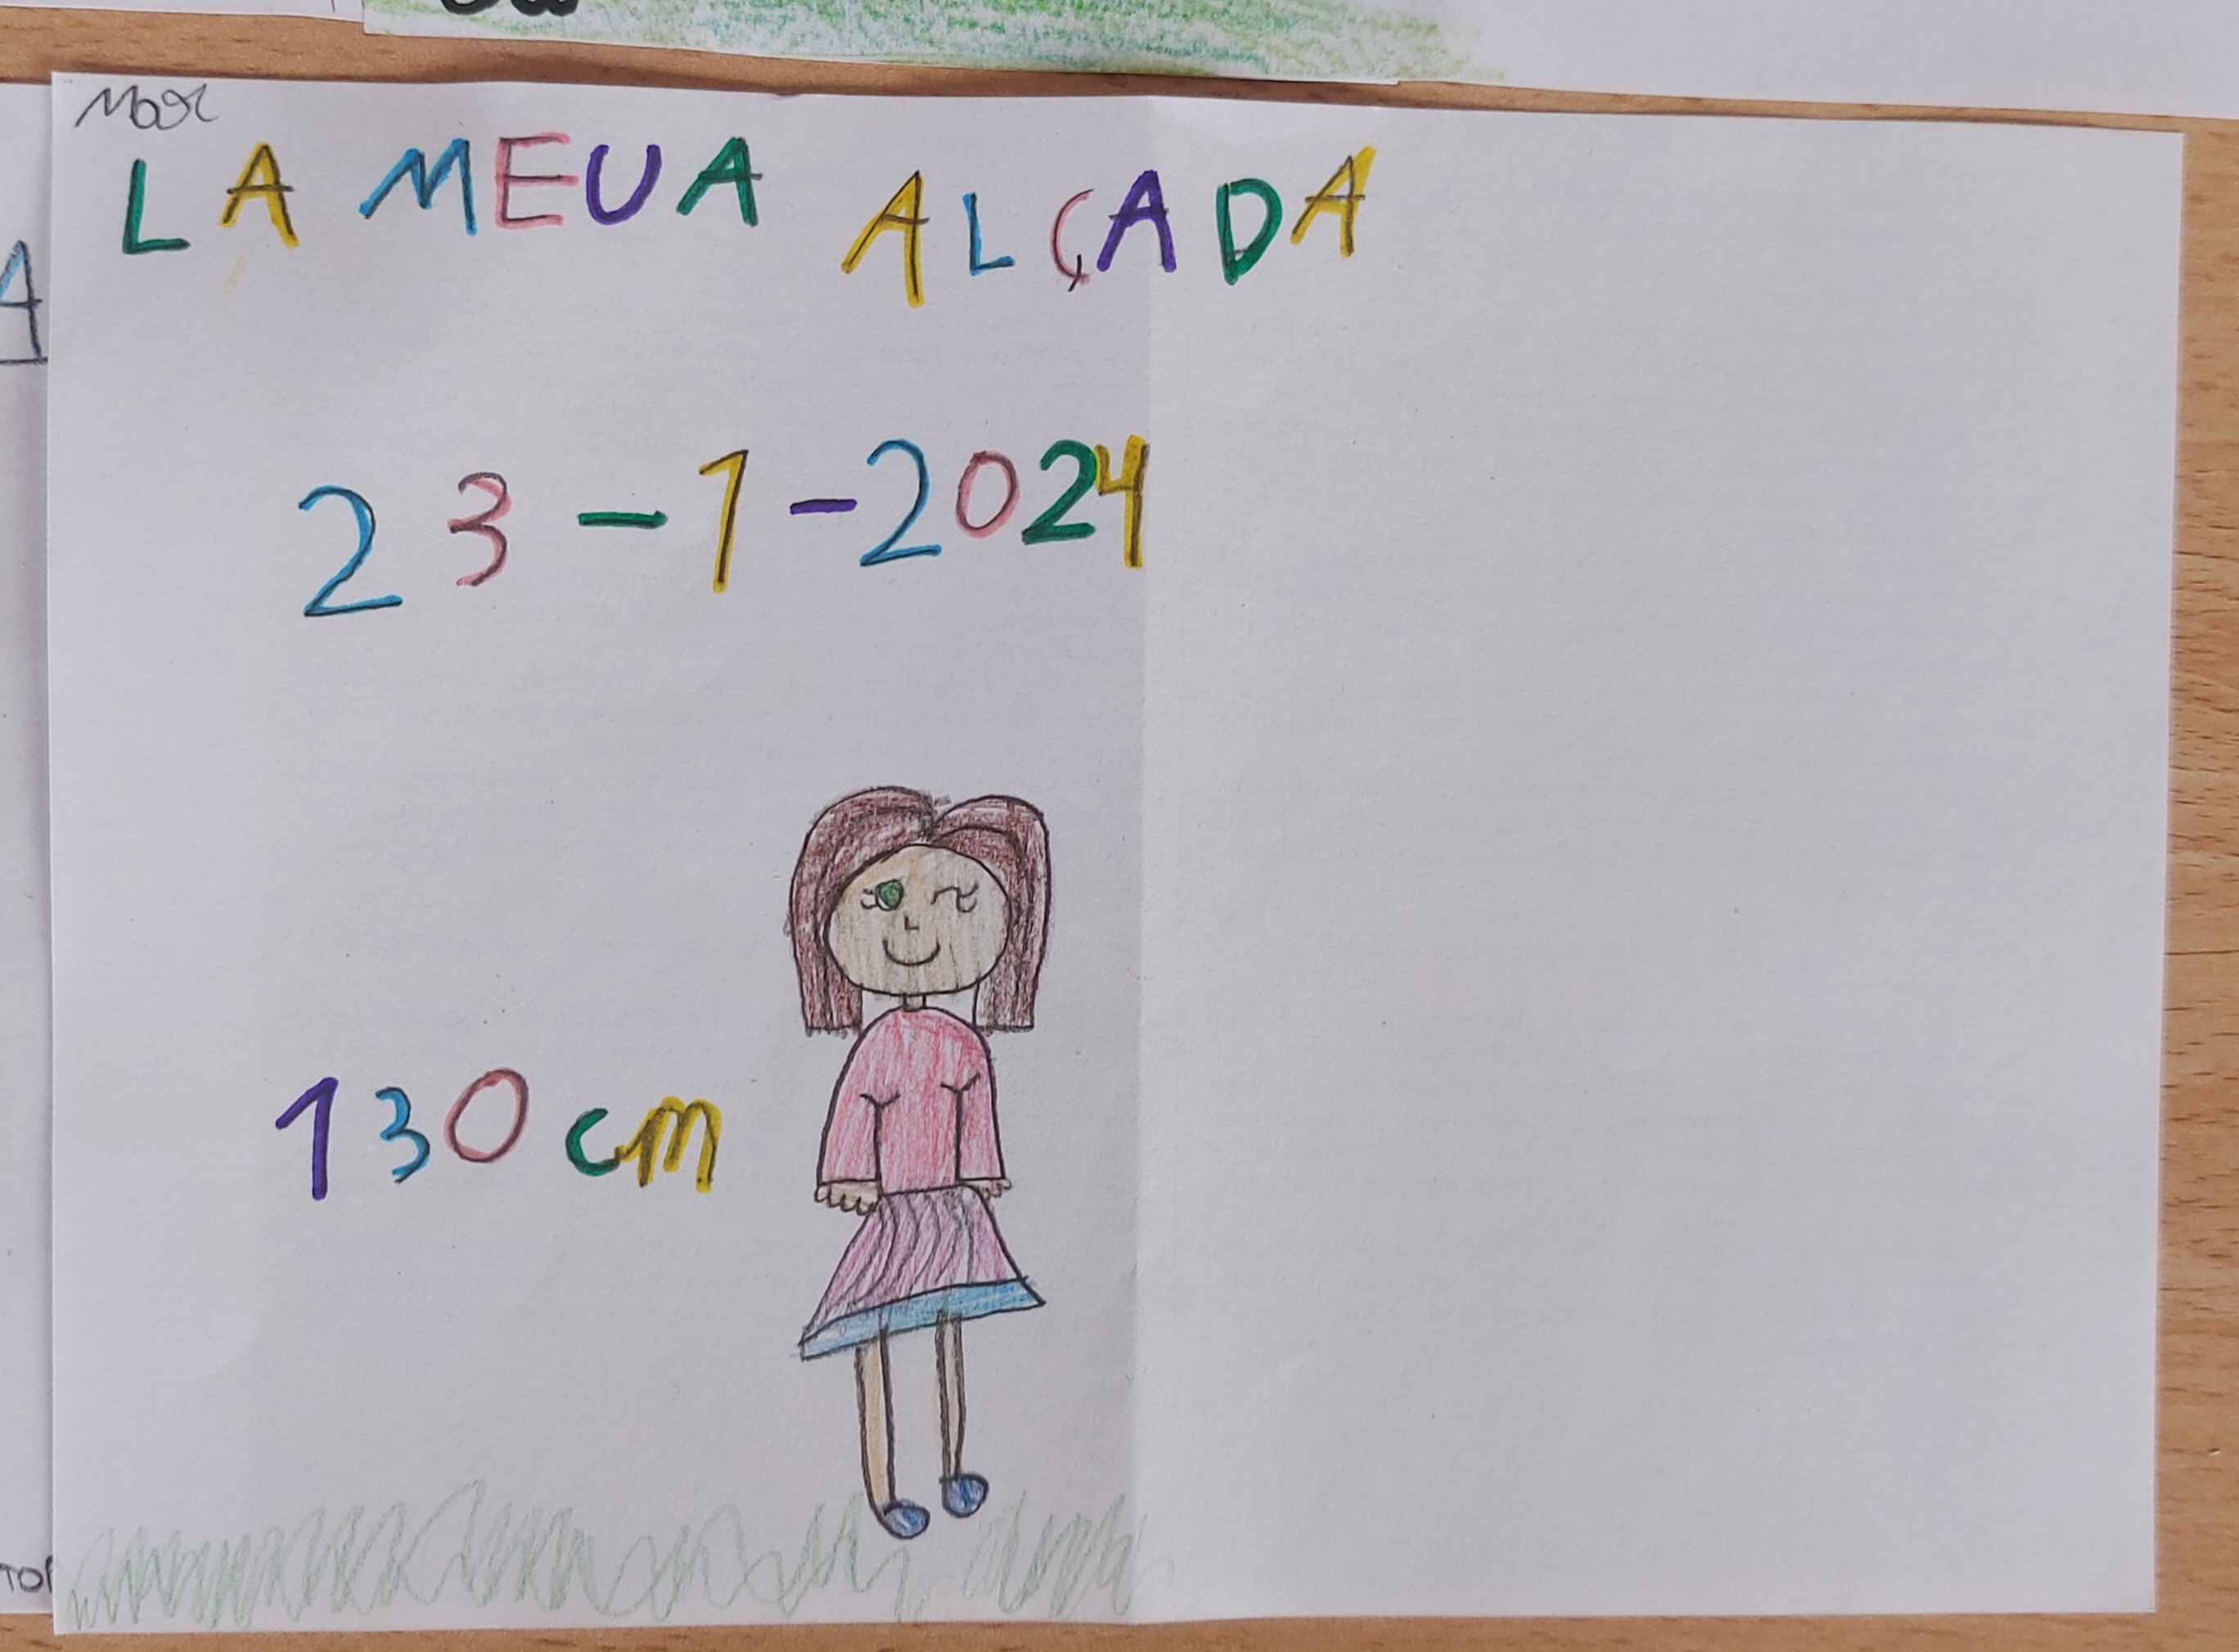 Mar
LA MEUA ALÇADA
23-1-2024
130 cm